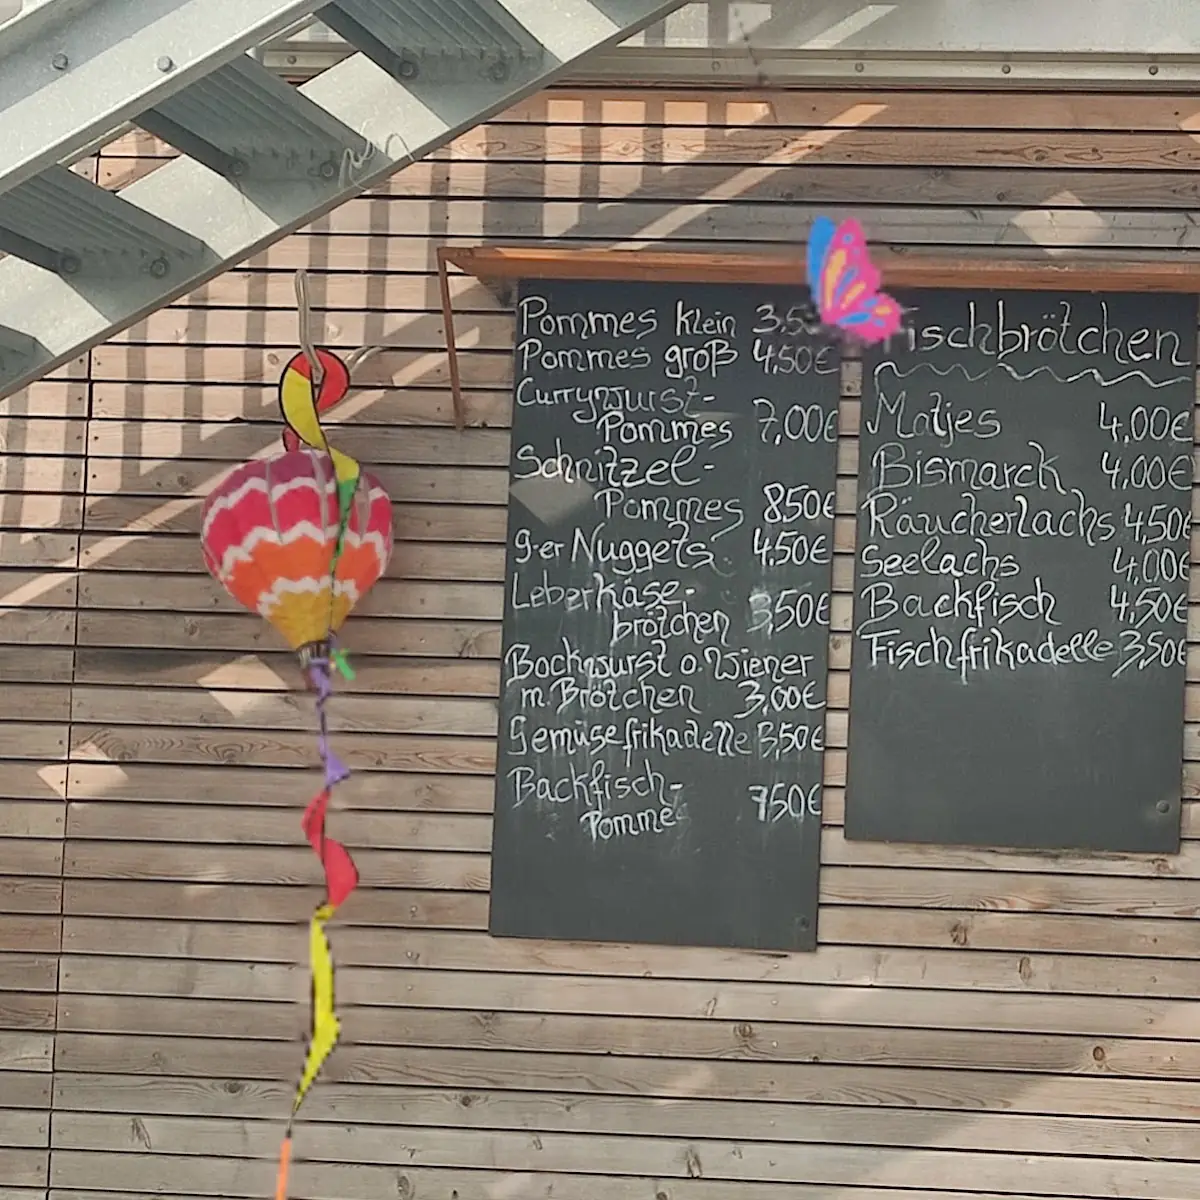 Pommes klein 3,5
Pommes groß 4,50€
Currywurst-
Pommes 7,00€
Schnitzel-
Pommes 8,50€
9-er Nuggets 4,50€
Leberkäse-
brötchen 3,50€
Bockwurst o. Wiener
m. Brötchen 3,00€
Gemüsefrikadelle 3,50€
Backfisch-
Pomme 7,50€
Fischbrötchen
Matjes 4,00€
Bismarck 4,00€
Räucherlachs 4,50€
Seelachs 4,00€
Backfisch 4,50€
Fischfrikadelle 3,50€